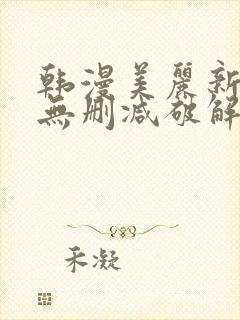 韩漫美麗新
無删减破解
禾凝